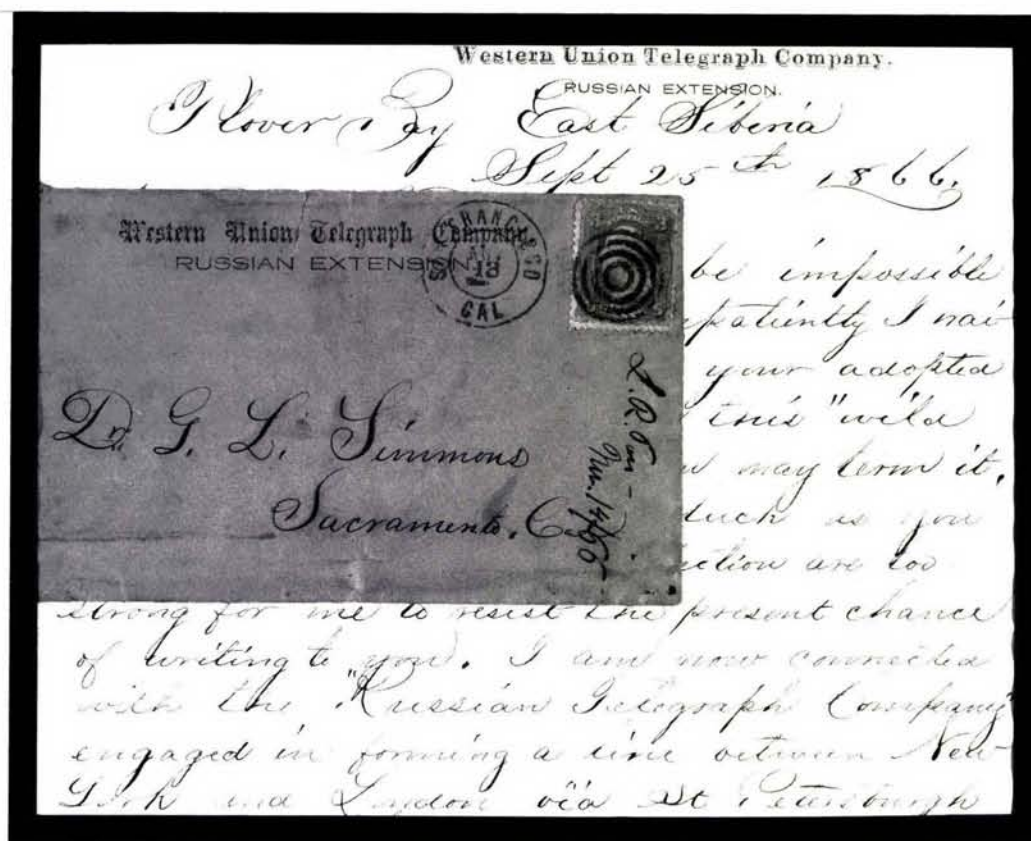 Western Union Telegraph Company.
RUSSIAN EXTENSION.
Plover Bay East Siberia
Sept 25th 1866.
Western Union Telegraph Company
RUSSIAN EXTENSION.
SAN FRANCISCO
13
CAL
Dr. G. L. Simmons
Sacramento, C
be impossible
patiently I wai
your adopted
this "wild
may term it.
luck is you
ction are too
strong for me to resist the present chance
of writing to you. I am now connected
with the "Russian Telegraph Company"
engaged in forming a line between New
York and London via St Petersburgh